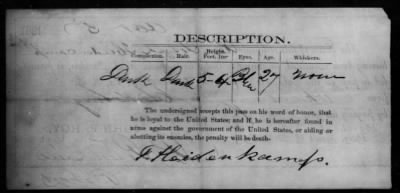 DESCRIPTION.
Complexion. Hair. Height. Feet. In. Eyes. Age. Whiskers.
Dark Dark 5-4 Blu 27 none
The undersigned accepts this pass on his word of honor, that
he is loyal to the United States; and if, he is hereafter found in
arms against the government of the United States, or aiding or
abetting its enemies, the penalty will be death.
F. Heidenkamp.